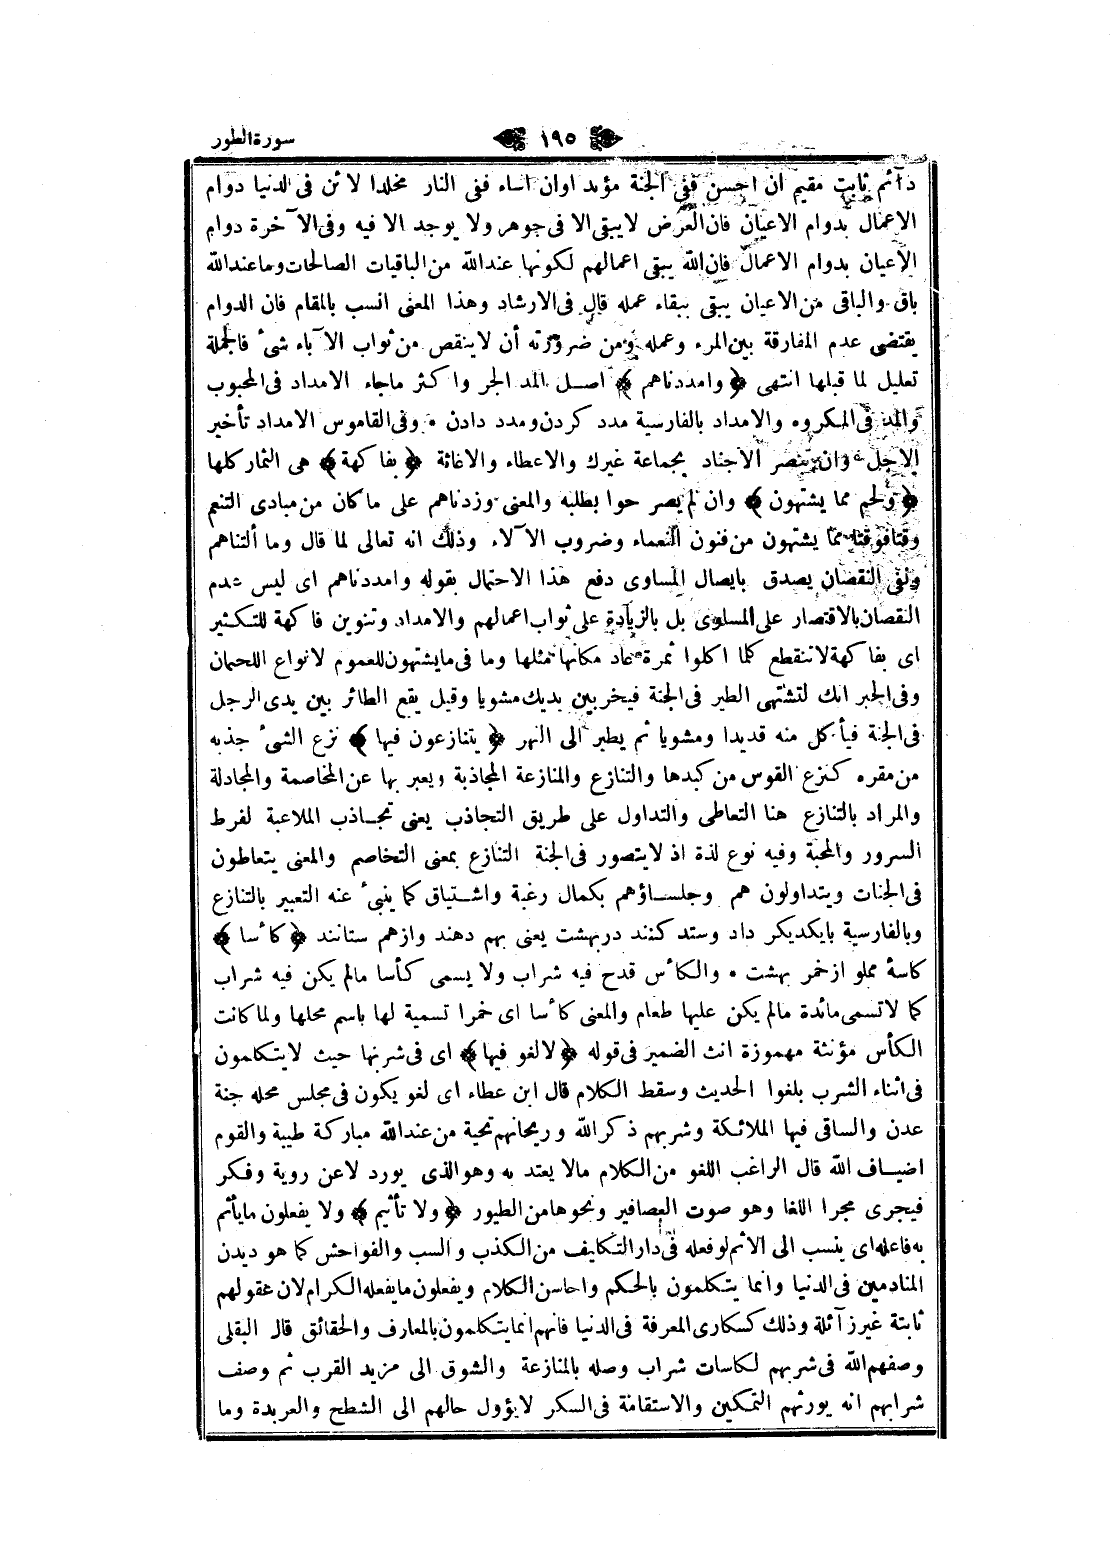 سورة الطور
١٩٥
دآئم ثابت مقيم ان احسن ففى الجنة مؤبد اوان اساء ففى النار مخلدا لائن فى الدنيا دوام
الاعمال بدوام الاعيان فان العرض لايبقى الا فى جوهر ولا يوجد الا فيه وفى الآخرة دوام
الاعيان بدوام الاعمال فان الله يبقى اعمالهم لكونها عند الله من الباقيات الصالحات وما عند الله
باق والباقى من الاعيان يبقى ببقاء عمله قال فى الارشاد وهذا المعنى انسب بالمقام فان الدوام
يقتضى عدم المفارقة بين المرء وعمله ومن ضرورته أن لاينقص من ثواب الآباء شئ فالجملة
تعليل لما قبلها انتهى ﴿ وامددناهم ﴾ اصل المد الجر واكثر ماجاء الامداد فى المحبوب
والمد فى المكروه والامداد بالفارسية مدد كردن ومدد دادن • وفى القاموس الامداد تأخير
الاجل وان تنصر الاجناد بجماعة غيرك والاعطاء والاغاثة ﴿ بفاكهة ﴾ هى الثمار كلها
﴿ ولحم مما يشتهون ﴾ وان لم يصرحوا بطلبه والمعنى وزدناهم على ما كان من مبادى التنعم
وقتا فوقتا مما يشتهون من فنون النعماء وضروب الآلاء وذلك انه تعالى لما قال وما ألتناهم
ونفى النقصان يصدق بايصال المساوى دفع هذا الاحتمال بقوله وامددناهم اى ليس عدم
النقصان بالاقتصار على المساوى بل بالزيادة على ثواب اعمالهم والامداد وتنوين فاكهة للتكثير
اى بفاكهة لاتنقطع كلما اكلوا ثمرة عاد مكانها مثلها وما فى ما يشتهون للعموم لانواع اللحمان
وفى الخبر انك لتشتهى الطير فى الجنة فيخر بين يديك مشويا وقيل يقع الطائر بين يدى الرجل
فى الجنة فيأكل منه قديدا ومشويا ثم يطير الى النهر ﴿ يتنازعون فيها ﴾ نزع الشئ جذبه
من مقره كنزع القوس من كبدها والتنازع والمنازعة المجاذبة ويعبر بها عن المخاصمة والمجادلة
والمراد بالتنازع هنا التعاطى والتداول على طريق التجاذب يعنى تجاذب الملاعبة لفرط
السرور والمحبة وفيه نوع لذة اذ لايتصور فى الجنة التنازع بمعنى التخاصم والمعنى يتعاطون
فى الجنات ويتداولون هم وجلساؤهم بكمال رغبة واشتياق كما ينبئ عنه التعبير بالتنازع
وبالفارسية بايكديكر داد وستد كنند دربهشت يعنى بهم دهند وازهم ستانند ﴿ كأسا ﴾
كاسهٔ مملو از خمر بهشت • والكأس قدح فيه شراب ولا يسمى كأسا مالم يكن فيه شراب
كما لاتسمى مائدة مالم يكن عليها طعام والمعنى كأسا اى خمرا تسمية لها باسم محلها ولما كانت
الكأس مؤنثة مهموزة انث الضمير فى قوله ﴿ لا لغو فيها ﴾ اى فى شربها حيث لايتكلمون
فى اثناء الشرب بلغوا الحديث وسقط الكلام قال ابن عطاء اى لغو يكون فى مجلس محله جنة
عدن والساقى فيها الملائكة وشربهم ذكر الله وريحانهم تحية من عند الله مباركة طيبة والقوم
اضياف الله قال الراغب اللغو من الكلام مالا يعتد به وهو الذى يورد لاعن روية وفكر
فيجرى مجرا اللغا وهو صوت العصافير ونحوها من الطيور ﴿ ولا تأثيم ﴾ ولا يفعلون مايأثم
به فاعله اى ينسب الى الاثم لو فعله فى دار التكليف من الكذب والسب والفواحش كما هو ديدن
المنادمين فى الدنيا وانما يتكلمون بالحكم واحاسن الكلام ويفعلون مايفعله الكرام لان عقولهم
ثابتة غير زآئلة وذلك كسكارى المعرفة فى الدنيا فانهم انما يتكلمون بالمعارف والحقائق قال البقلى
وصفهم الله فى شربهم لكاسات شراب وصله بالمنازعة والشوق الى مزيد القرب ثم وصف
شرابهم انه يورثهم التمكين والاستقامة فى السكر لايؤول حالهم الى الشطح والعربدة وما